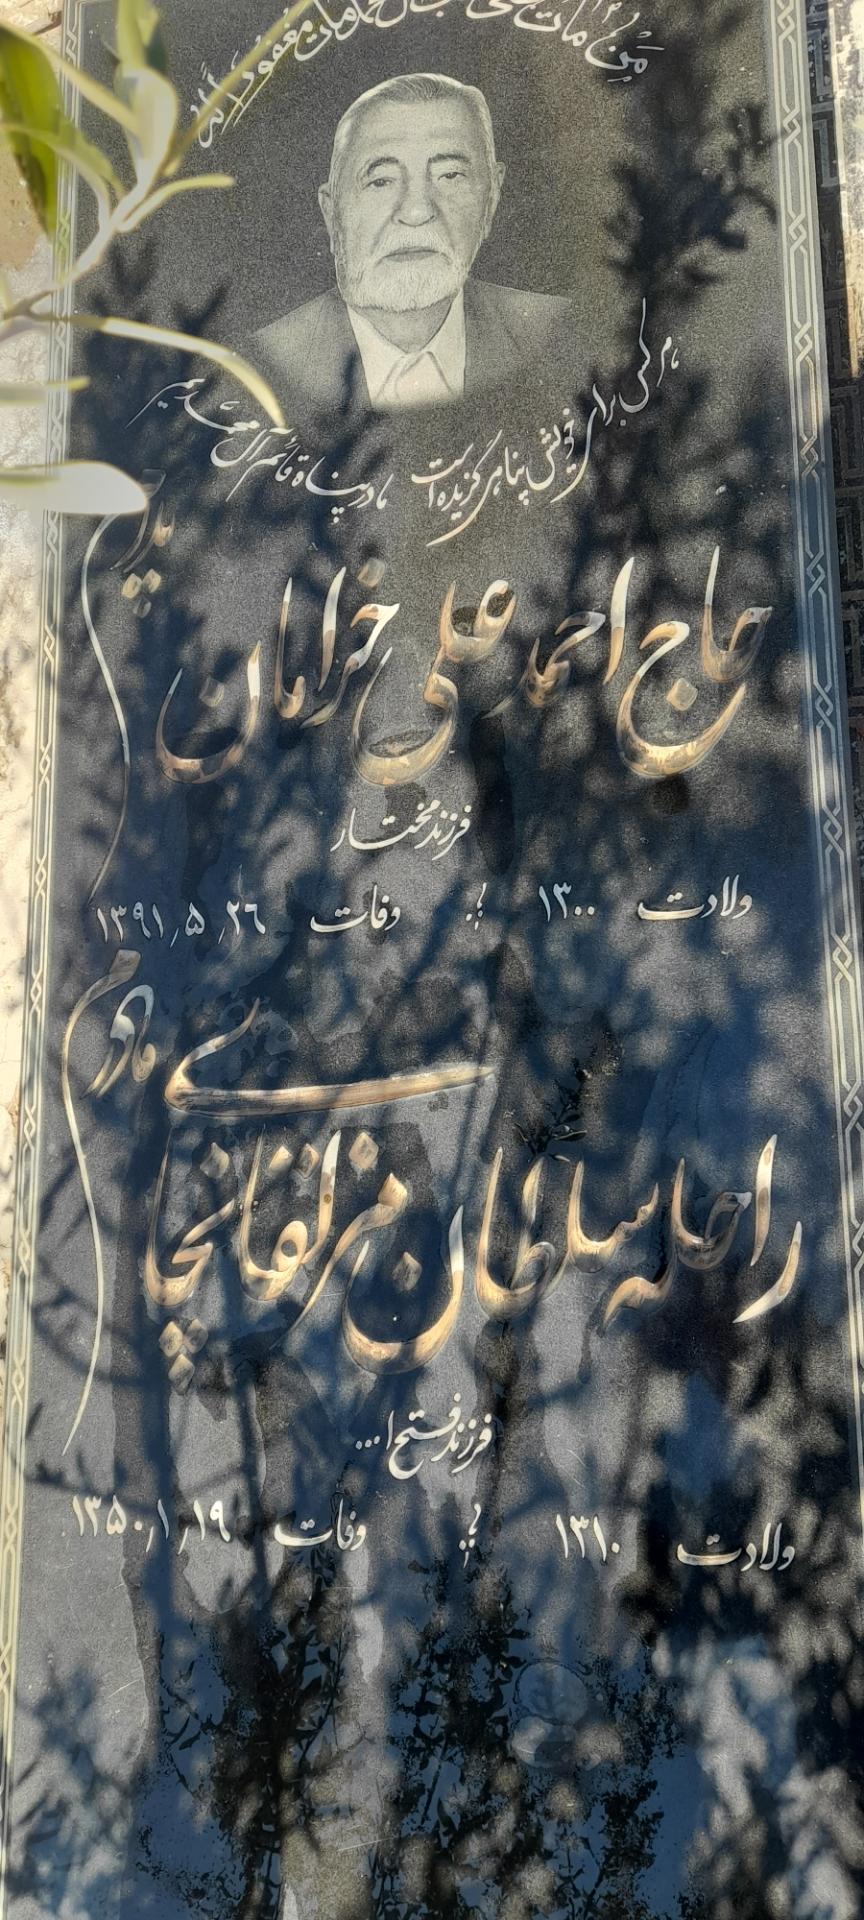 مَن ماتَ عَلی حُبِّ آلِ مُحَمَّد ماتَ مَغفُوراً لَه
هر کس برای خویش پناهی گزیده است
ما در پناه قائم آل محمدیم
پدرم
حاج احمد علی خرامان
فرزند مختار
ولادت ۱۳۰۰ وفات ۱۳۹۱٫۵٫۲۶
مادرم
راحله سلطان مزلقانچای
فرزند فتح ا...
ولادت ۱۳۱۰ وفات ۱۳۵۰٫۱٫۱۹